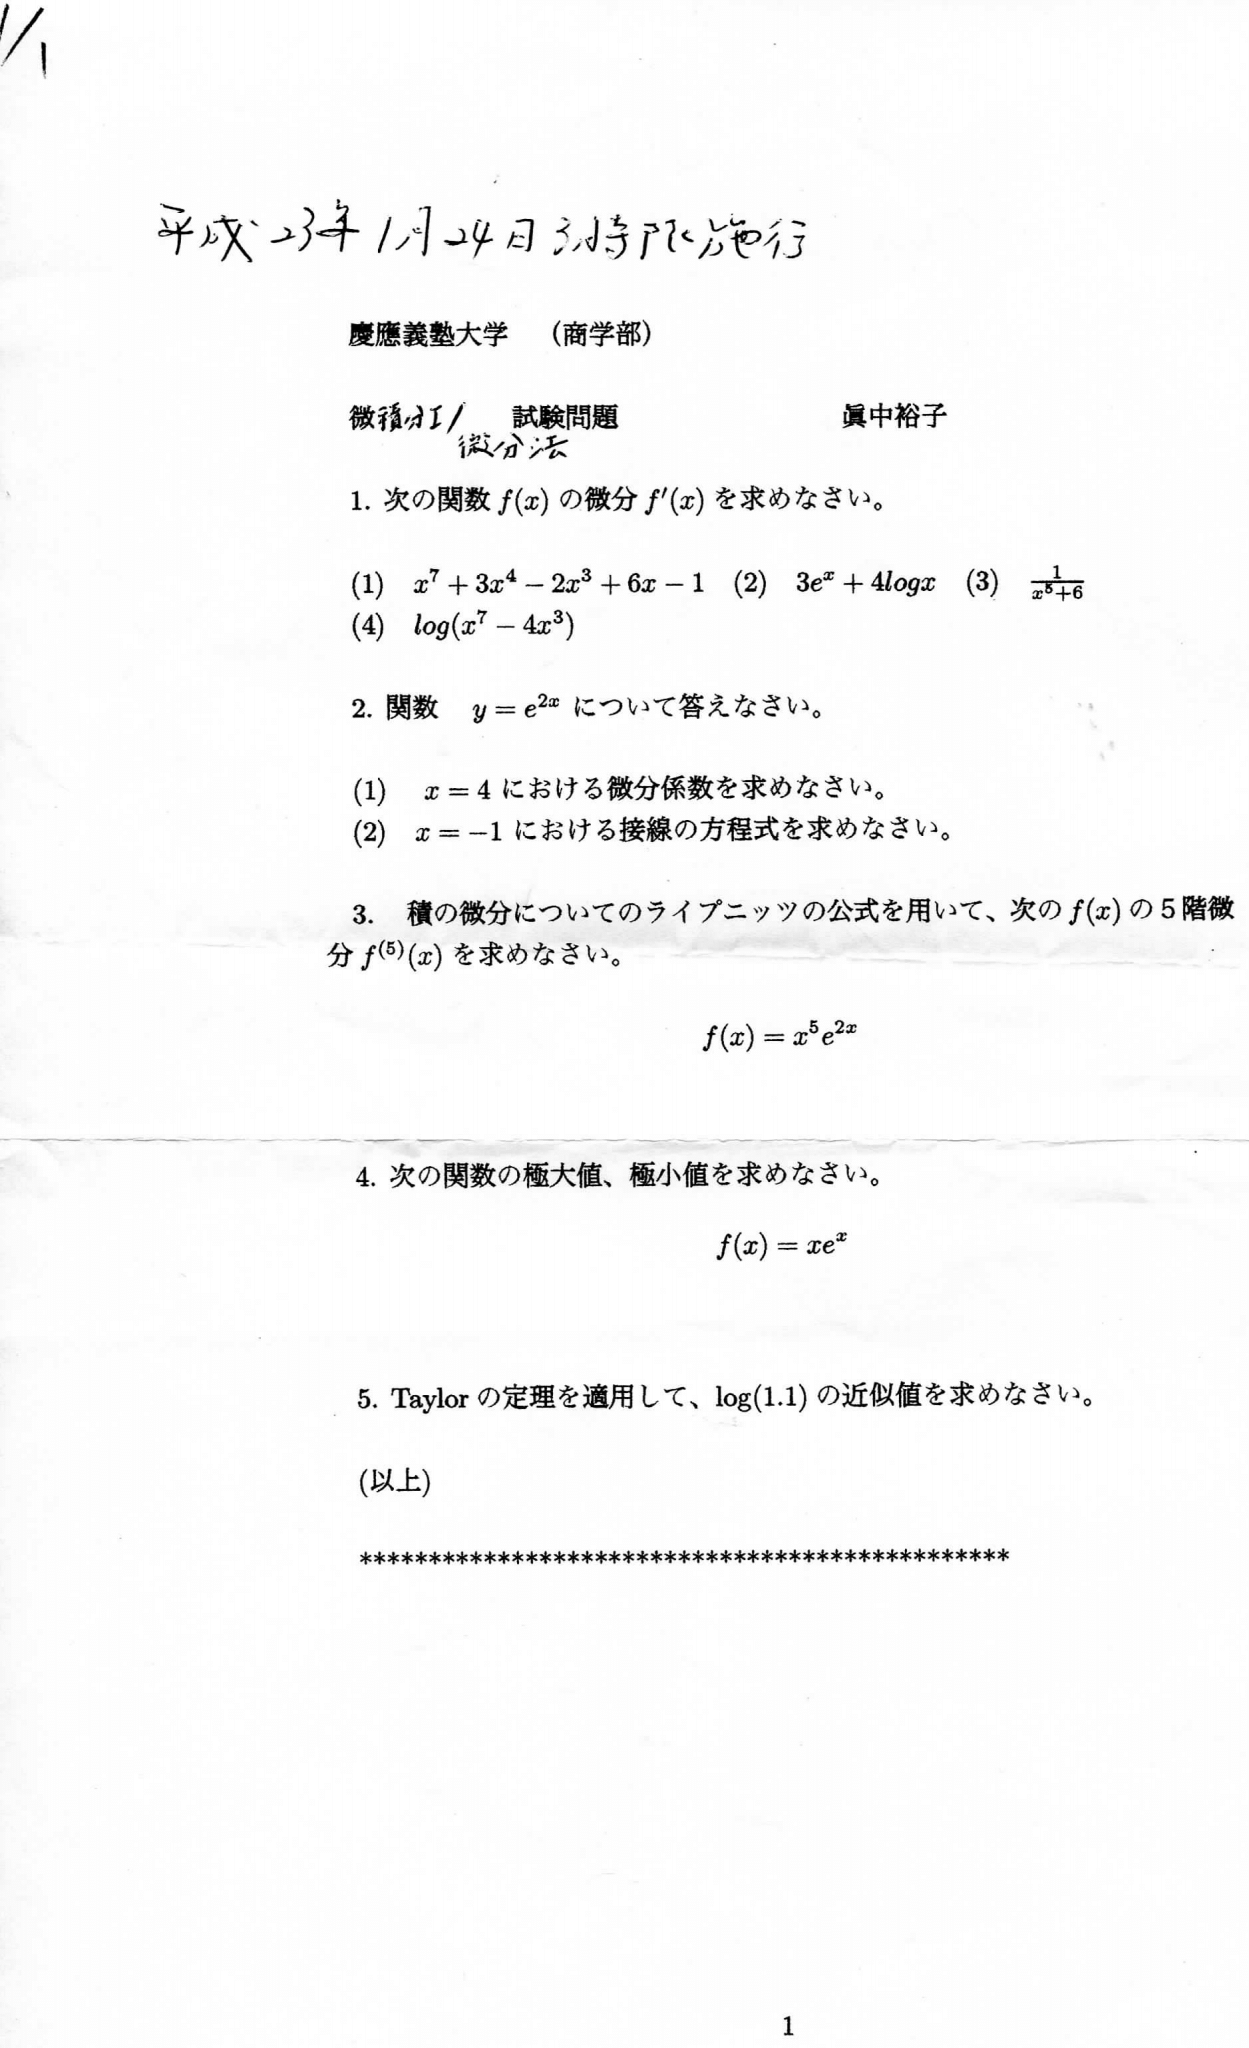 1/1
平成23年1月24日3時限施行
慶應義塾大学 （商学部）
微積分I/ 試験問題 眞中裕子
微分法
1. 次の関数 f(x) の微分 f′(x) を求めなさい。
(1) x⁷ + 3x⁴ − 2x³ + 6x − 1 (2) 3eˣ + 4logx (3) 1/(x⁵+6)
(4) log(x⁷ − 4x³)
2. 関数 y = e²ˣ について答えなさい。
(1) x = 4 における微分係数を求めなさい。
(2) x = −1 における接線の方程式を求めなさい。
3. 積の微分についてのライプニッツの公式を用いて、次の f(x) の５階微
分 f⁽⁵⁾(x) を求めなさい。
f(x) = x⁵e²ˣ
4. 次の関数の極大値、極小値を求めなさい。
f(x) = xeˣ
5. Taylor の定理を適用して、log(1.1) の近似値を求めなさい。
(以上)
***********************************************
1